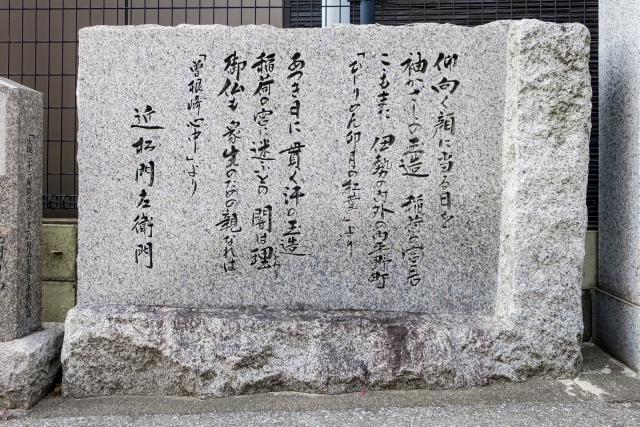 仰向く顔に当る日を
袖かざしの玉造 稲荷の宮居
こもまた 伊勢の内外の内平野町
「ひぢりめん卯月の紅葉」より
あつき日に 貫く汗の玉造
稲荷の宮に迷ふとの 闇は理
御仏も 衆生のための親なれば
「曽根崎心中」より
近松門左衛門